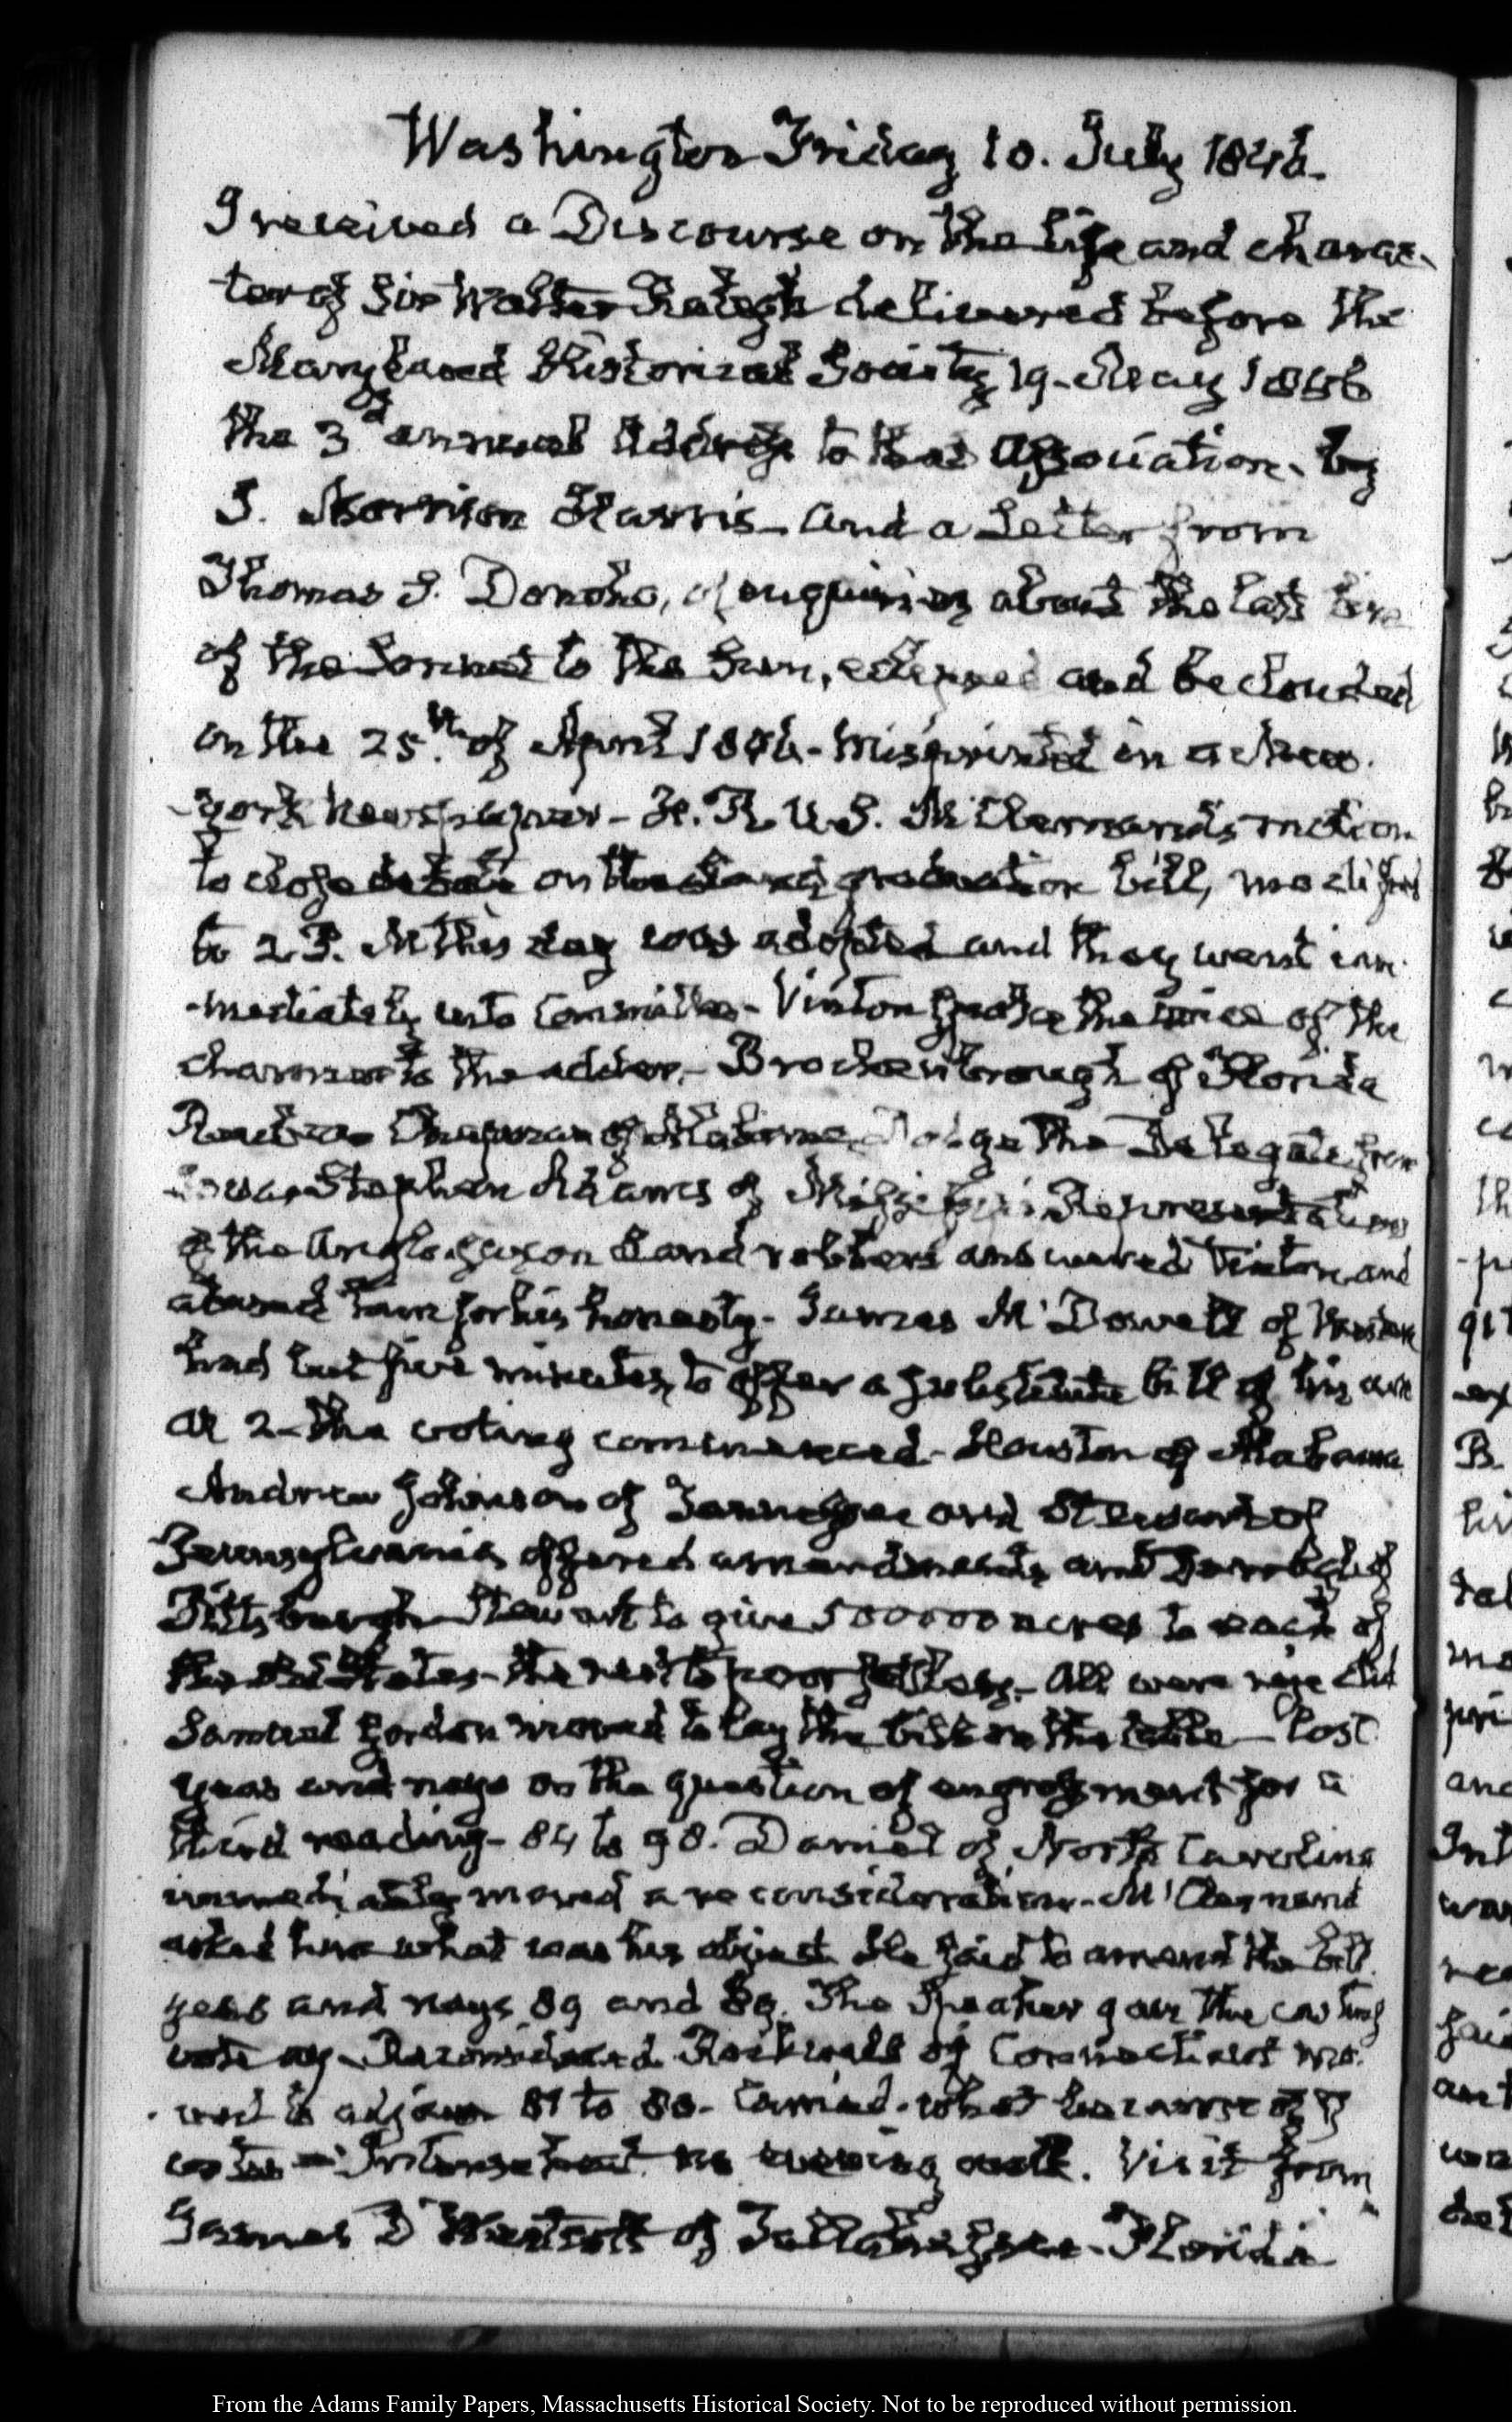 Washington Friday 10. July 1846.
I received a Discourse on the life and charac-
ter of Sir Walter Ralegh delivered before the
Maryland Historical Society 19. May 1846
the 3d annual Address to that Association. by
J. Morrison Harris. and a Letter from
Thomas J. Donoho, of enquiring about the last line
of the Sonnet to the Sun, eclipsed and beclouded
on the 25th. of April 1846. misprinted in a New.
york newspaper. H. R. U. S. McClernand's motion
to close debate on the land graduation bill, modified
to 2. P. M this day was adopted and they went im-
-mediately into Committee. Vinton spoke the voice of the
charmer to the adder. Brockenbrough of Florida
Reuben Chapman of Alabama, Dodge the Delegate from
Iowa, Stephen Adams of Mississippi Representatives
of the Anglo-Saxon Land robbers answered Vinton, and
abused him for his honesty. James McDowell of
had but five minutes, to offer a substitute bill of his own
At 2. the voting commenced. Houston of Alabama
Andrew Johnson of Tennessee and Stewart of
Pennsylvania offered amendments and of
Pittsburgh Stewart to give 500000 acres to each of
the old States. the rest to poor settlers. All were rejected
Samuel Gordon moved to lay the bill on the table. lost
yeas and nays on the question of engrossment for a
third reading. 84 to 98. Daniel of North Carolina
immediately moved a reconsideration. McClernand
asked him what was his object. He said to amend the bill.
yeas and nays 89 and 89. The Speaker gave the casting
vote ay. Reconsidered. Rockwell of Connecticut mo-
ved to adjourn 81 to 80. Carried. what became of
Intense heat. no evening walk. Visit from
James D Westcott of Tallahassee. Florida
From the Adams Family Papers, Massachusetts Historical Society. Not to be reproduced without permission.